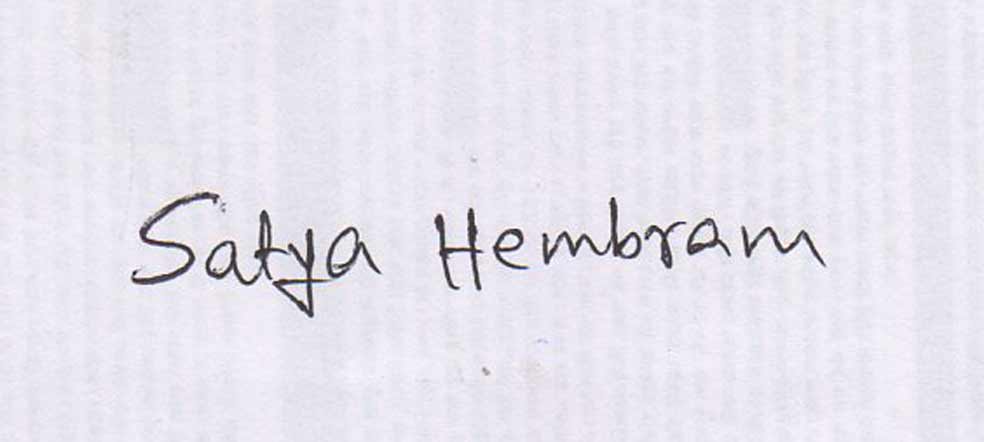 Satya Hembram